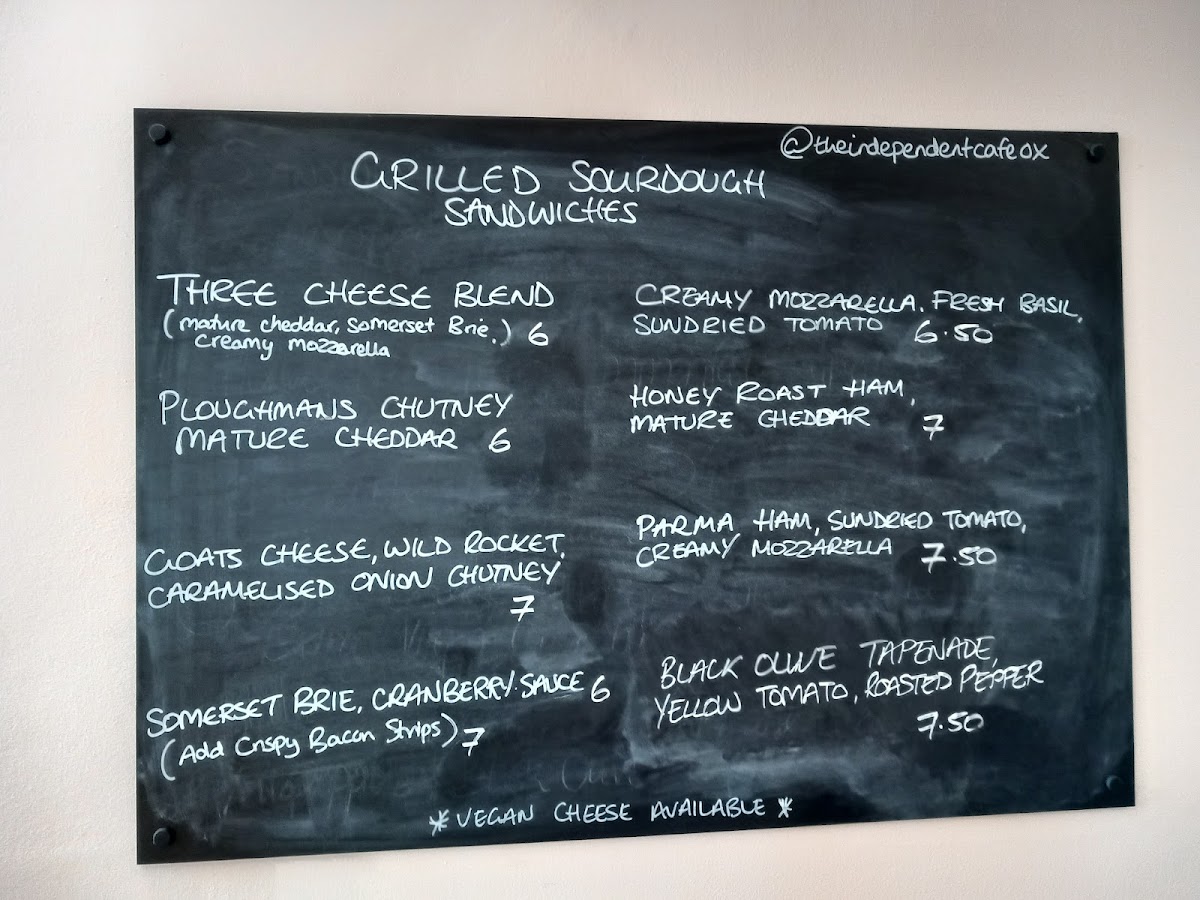 @theindependentcafeox
GRILLED SOURDOUGH
SANDWICHES
THREE CHEESE BLEND
(mature cheddar, Somerset Brie,) 6
creamy mozzarella
PLOUGHMANS CHUTNEY
MATURE CHEDDAR 6
GOATS CHEESE, WILD ROCKET,
CARAMELISED ONION CHUTNEY
7
SOMERSET BRIE, CRANBERRY SAUCE 6
(Add Crispy Bacon Strips) 7
CREAMY MOZZARELLA, FRESH BASIL,
SUNDRIED TOMATO 6.50
HONEY ROAST HAM,
MATURE CHEDDAR 7
PARMA HAM, SUNDRIED TOMATO,
CREAMY MOZZARELLA 7.50
BLACK OLIVE TAPENADE,
YELLOW TOMATO, ROASTED PEPPER
7.50
*VEGAN CHEESE AVAILABLE*